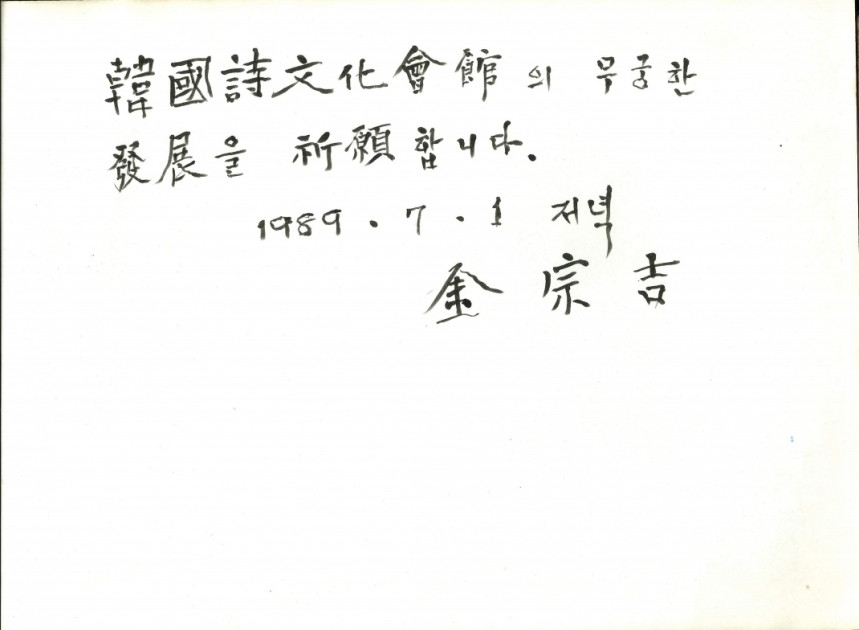 韓國詩文化會館의 무궁한
發展을 祈願합니다.
1989. 7. 1 저녁
金宗吉